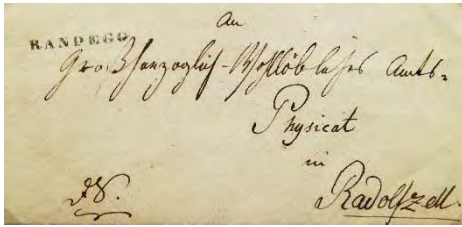 An
RANDEGG
Großherzoglich-Wohllöbliches Amts-
Physicat
in
Radolfzell.